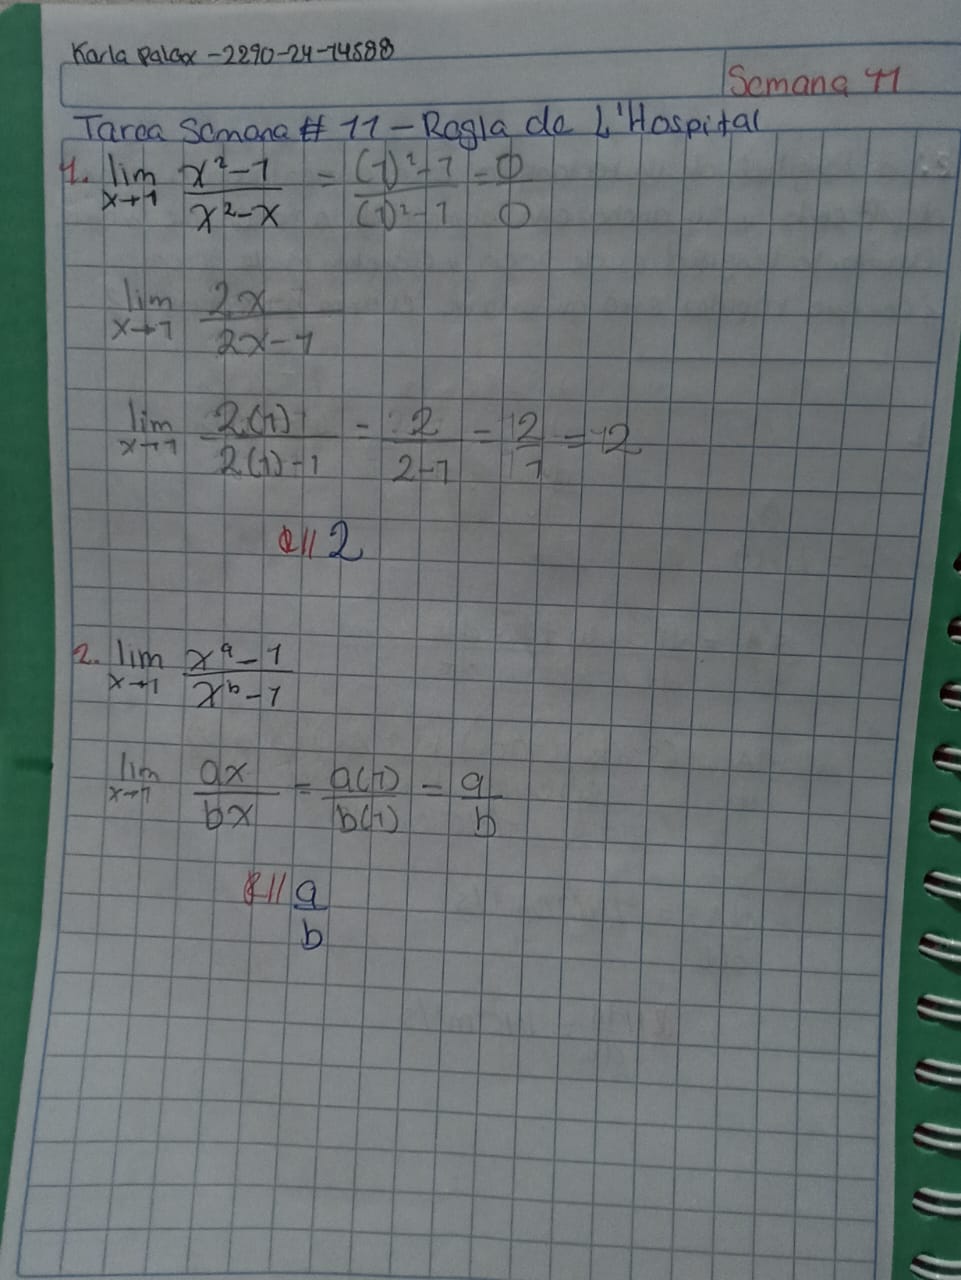 Karla Palax - 2290-24-14588
Semana 11
Tarea Semana # 11 - Regla de L'Hospital
1. lim x→1 (x² - 1)/(x² - x) = ((1)² - 1)/((1)² - 1) = 0/0
lim x→1 2x/(2x - 1)
lim x→1 2(1)/(2(1) - 1) = 2/(2 - 1) = 2/1 = 2
R// 2
2. lim x→1 (xᵃ - 1)/(xᵇ - 1)
lim x→1 ax/bx = a(1)/b(1) = a/b
R// a/b